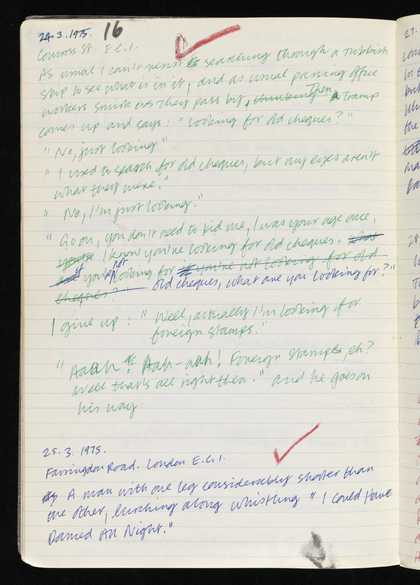 24.3.1975. 16
Cowcross St. E.C.1.
As usual I can't resist searching through a rubbish
skip to see what is in it, and as usual passing office
workers smile as they pass by, Then a tramp
comes up and says: "Looking for old cheques?"
"No, just looking"
"I used to search for old cheques, but my eyes aren't
what they were."
"No, I'm just looking."
"Go on, you don't need to kid me, I was your age once,
I know you're looking for old cheques.
you're not looking for if you're not looking for old
cheques? old cheques, what are you looking for?"
I give up: "Well, actually I'm looking for
foreign stamps."
"Aaah! Aah-aah! Foreign stamps, eh?
Well that's all right then." and he goes on
his way
25.3.1975.
Farringdon Road. London E.C.1.
A man with one leg considerably shorter than
the other, lurching along whistling "I Could Have
Danced All Night."